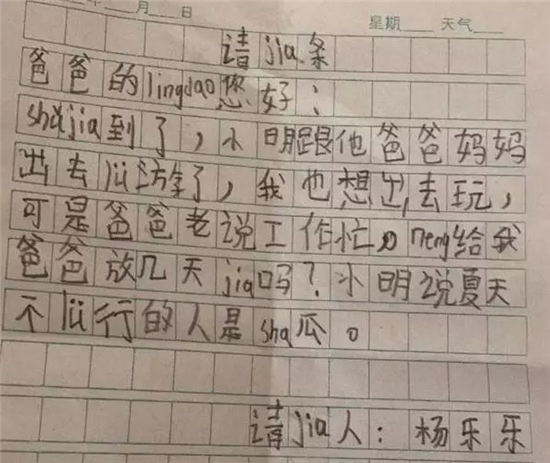 年 月 日 星期 天气
请jia条
爸爸的lingdao您好：
shǔjia到了，小明跟他爸爸妈妈
出去lü游了，我也想出去玩，
可是爸爸老说工作忙，neng给我
爸爸放几天jia吗？小明说夏天
不lü行的人是sha瓜。
请jia人：杨乐乐